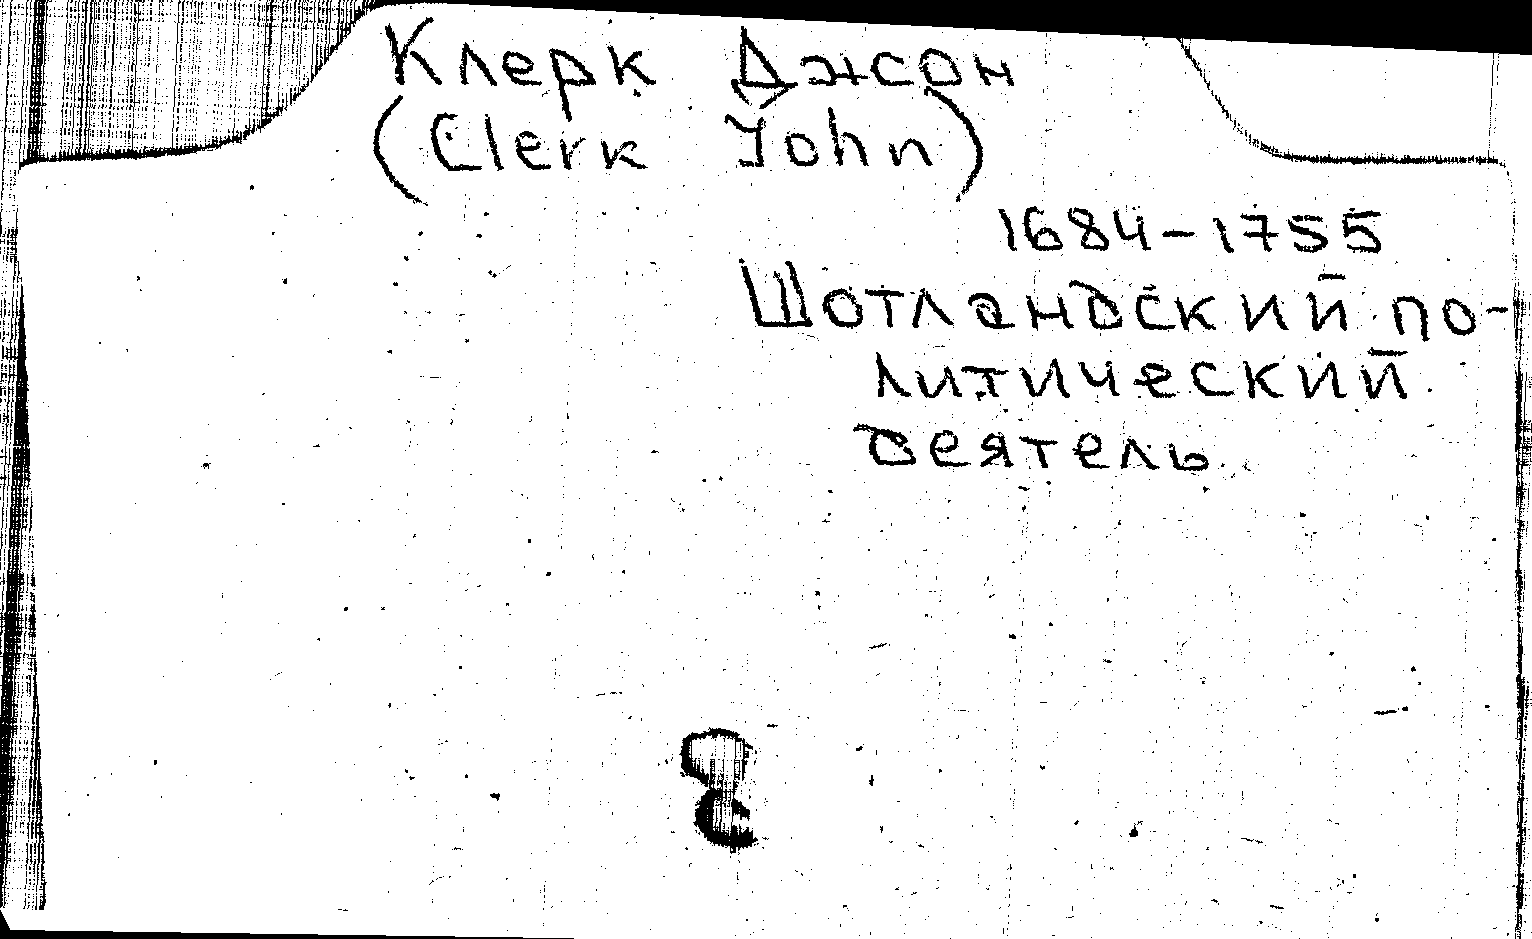 Клерк Джон
(Clerk John)
1684-1755
Шотландский по-
литический
деятель